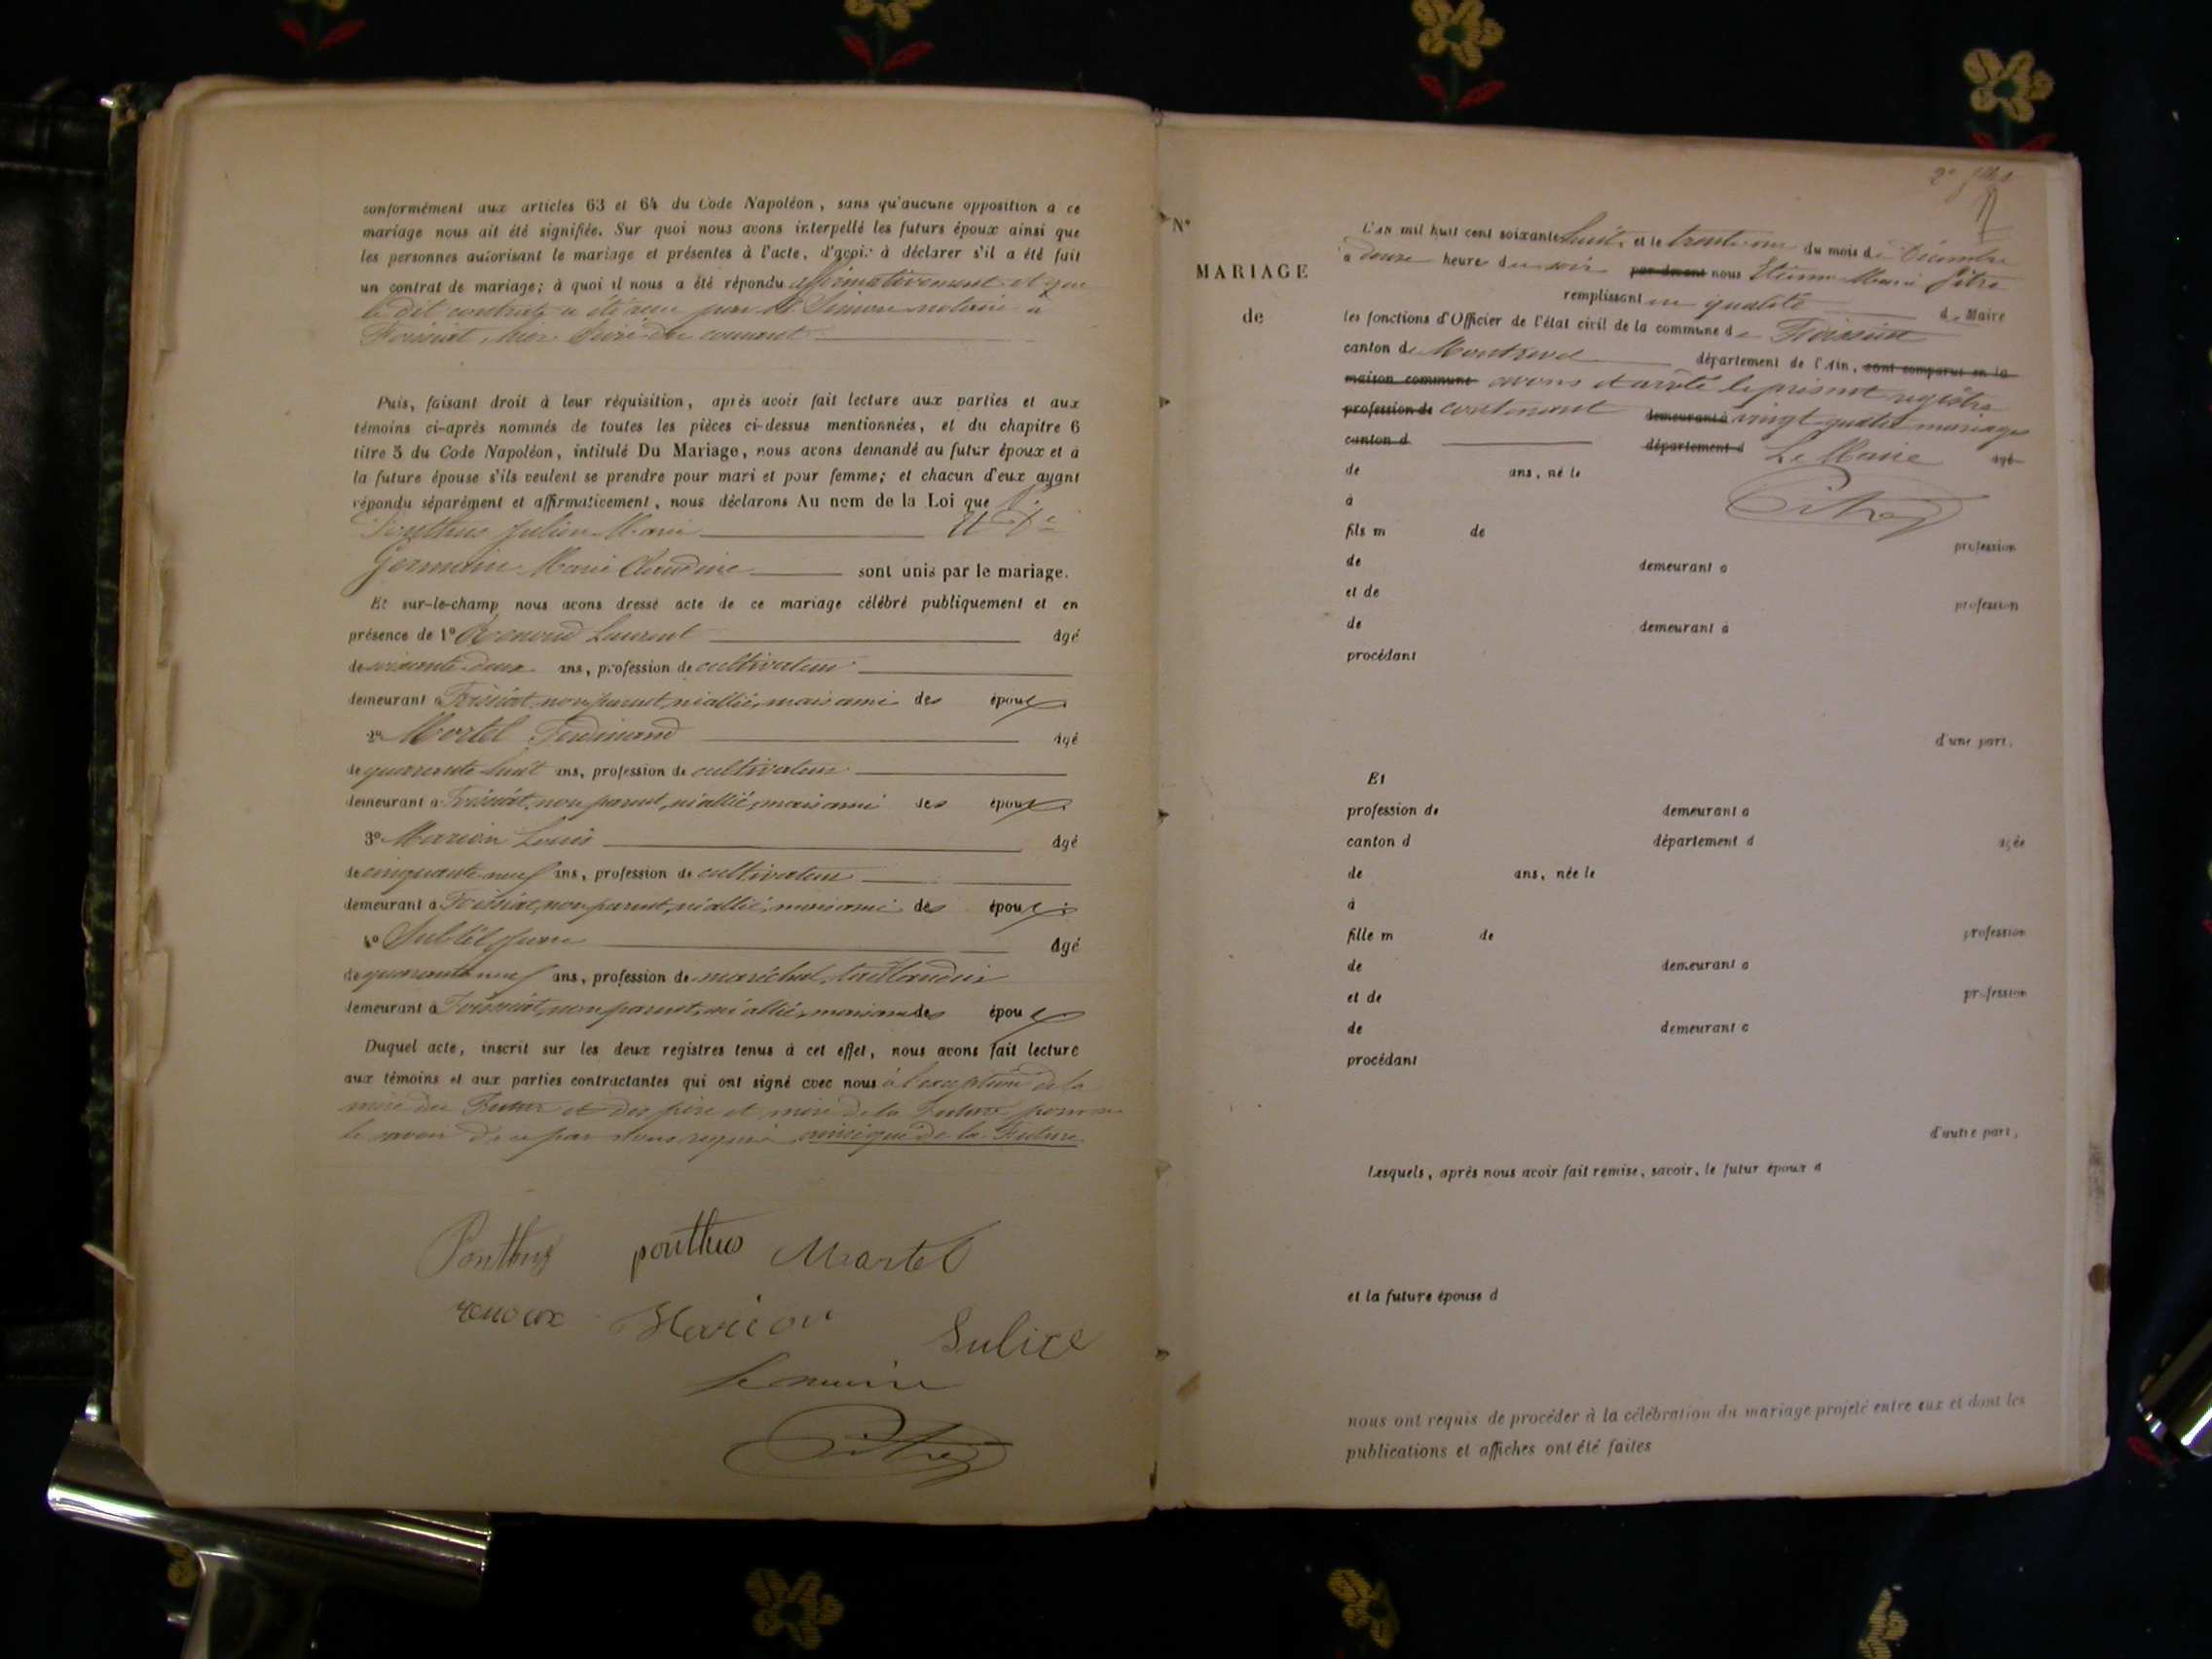 conformément aux articles 63 et 64 du Code Napoléon, sans qu'aucune opposition a ce
mariage nous ait été signifiée. Sur quoi nous avons interpellé les futurs époux ainsi que
les personnes autorisant le mariage et présentes à l'acte, d'avoir à déclarer s'il a été fait
un contrat de mariage; à quoi il nous a été répondu affirmativement et que
le dit contrat a été reçu par Me Simon notaire à
Foissiat, hier du courant
Puis, faisant droit à leur réquisition, après avoir fait lecture aux parties et aux
témoins ci-après nommés de toutes les pièces ci-dessus mentionnées, et du chapitre 6
titre 5 du Code Napoléon, intitulé Du Mariage, nous avons demandé au futur époux et à
la future épouse s'ils veulent se prendre pour mari et pour femme; et chacun d'eux ayant
répondu séparément et affirmativement, nous déclarons Au nom de la Loi que
Ponthus Julien Marie
Germain Marie Claudine sont unis par le mariage.
Et sur-le-champ nous avons dressé acte de ce mariage célébré publiquement et en
présence de 1° Renoud Laurent âgé
de soixante deux ans, profession de cultivateur
demeurant à Foissiat, non parent, ni allié, mais ami des époux
2° Martel Ferdinand âgé
de quarante huit ans, profession de cultivateur
demeurant à Foissiat, non parent, ni allié, mais ami des époux
3° Marion Louis âgé
de cinquante neuf ans, profession de cultivateur
demeurant à Foissiat, non parent, ni allié, mais ami des époux
4° Subtil Jean âgé
de quarante neuf ans, profession de maréchal taillandier
demeurant à Foissiat, non parent, ni allié, mais ami des époux
Duquel acte, inscrit sur les deux registres tenus à cet effet, nous avons fait lecture
aux témoins et aux parties contractantes qui ont signé avec nous à l'exception de la
mère du Futur et des père et mère de la Future pour ne
le savoir de ce par nous requis ainsi que de la Future
Ponthus ponthus Martel
renoux Marion
Le maire
Pitre
N°
MARIAGE
de
L'an mil huit cent soixante huit, et le trente un du mois de Décembre
à douze heure du soir par-devant nous Etienne Marie Pitre
remplissant en qualité de Maire
les fonctions d'Officier de l'état civil de la commune de Foissiat
canton de Montrevel département de l'Ain, sont comparus en la
maison commune avons et arrêté le présent registre
profession de contenant demeurant à vingt quatre mariages
canton d département d Le Maire âgé
de ans, né le
à Pitre
fils m de profession
de demeurant à
et de profession
de demeurant à
procédant
d'une part,
Et
profession de demeurant à
canton d département d âgée
de ans, née le
à
fille m de profession
de demeurant à
et de profession
de demeurant à
procédant
d'autre part,
Lesquels, après nous avoir fait remise, savoir, le futur époux d
et la future épouse d
nous ont requis de procéder à la célébration du mariage projeté entre eux et dont les
publications et affiches ont été faites